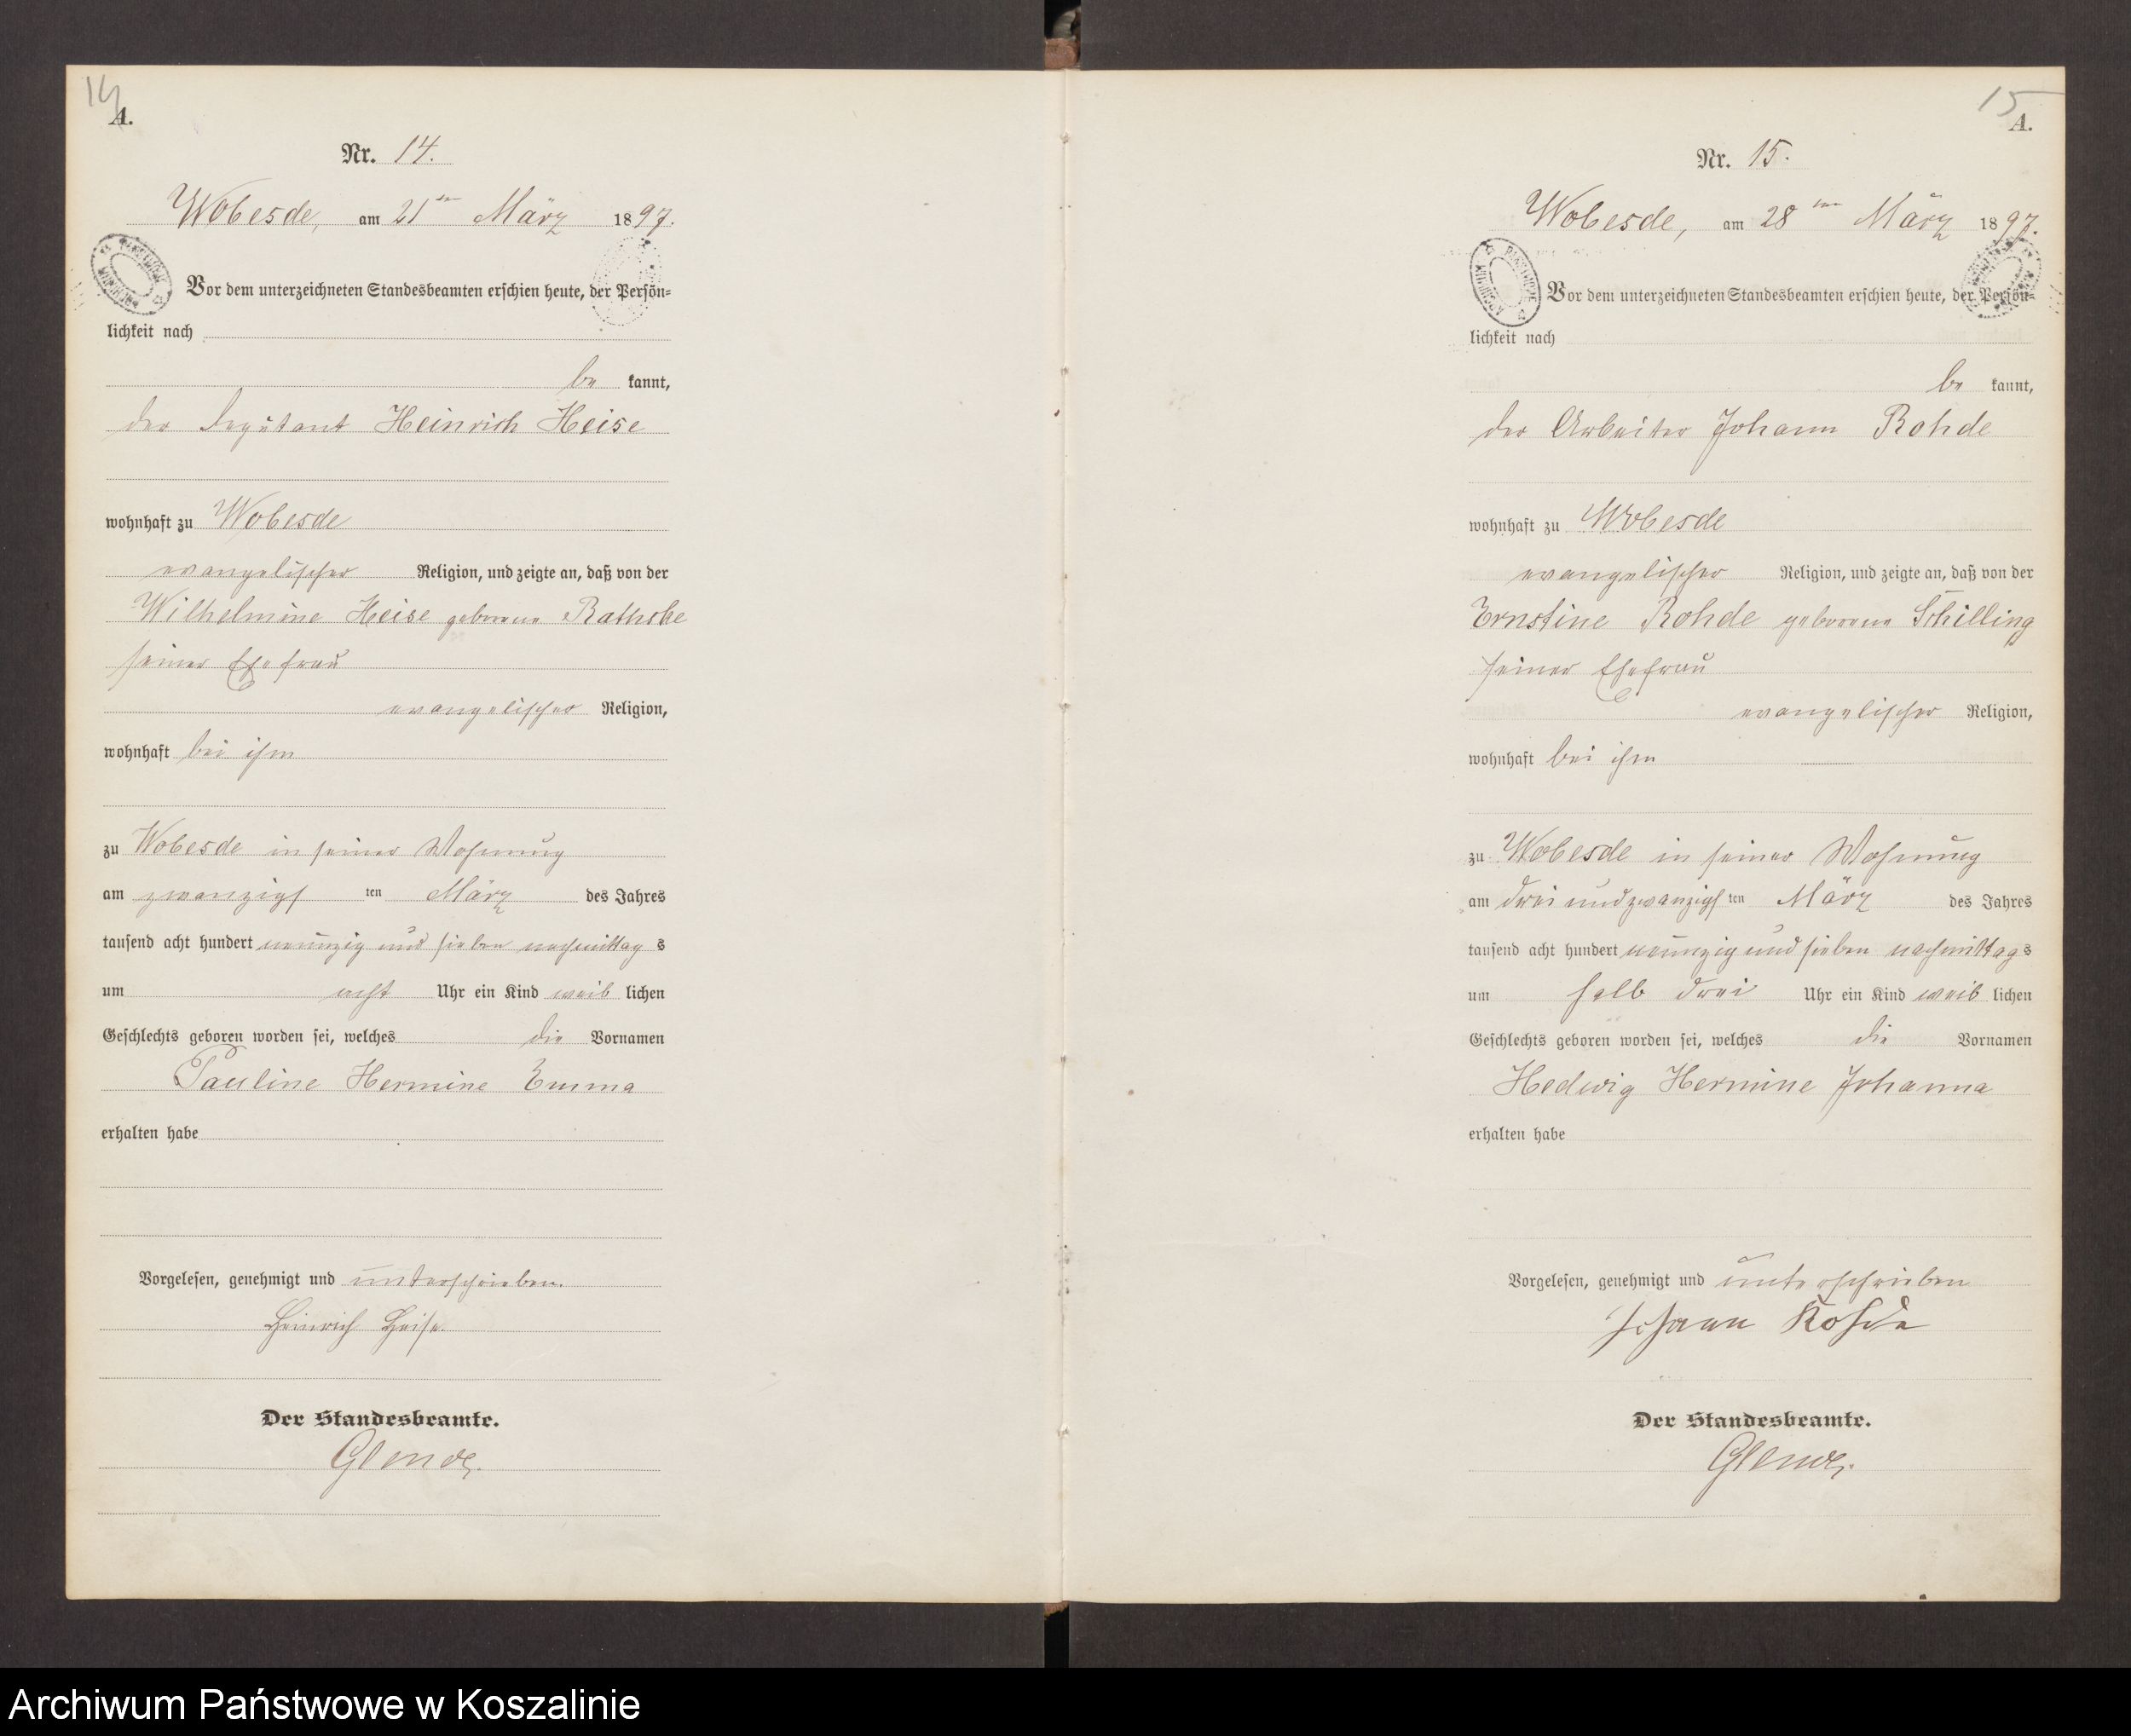 14
A.
Nr. 14.
Wobesde, am 21ten März 1897.
Vor dem unterzeichneten Standesbeamten erschien heute, der Persön=
lichkeit nach
be kannt,
der Deputant Heinrich Heise
wohnhaft zu Wobesde
evangelischer Religion, und zeigte an, daß von der
Wilhelmine Heise geborene Rathske
seiner Ehefrau
evangelischer Religion,
wohnhaft bei ihm
zu Wobesde in seiner Wohnung
am zwanzigs ten März des Jahres
tausend acht hundert neunzig und sieben nachmittag s
um acht Uhr ein Kind weib lichen
Geschlechts geboren worden sei, welches die Vornamen
Pauline Hermine Emma
erhalten habe
Vorgelesen, genehmigt und unterschrieben.
Heinrich Heise
Der Standesbeamte.
15
A.
Nr. 15.
Wobesde, am 28ten März 1897.
Vor dem unterzeichneten Standesbeamten erschien heute, der Persön=
lichkeit nach
be kannt,
der Arbeiter Johann Rohde
wohnhaft zu Wobesde
evangelischer Religion, und zeigte an, daß von der
Ernstine Rohde geborene Schilling
seiner Ehefrau
evangelischer Religion,
wohnhaft bei ihm
zu Wobesde in seiner Wohnung
am dreiundzwanzigs ten März des Jahres
tausend acht hundert neunzig und sieben nachmittags
um halb drei Uhr ein Kind weib lichen
Geschlechts geboren worden sei, welches die Vornamen
Hedwig Hermine Johanna
erhalten habe
Vorgelesen, genehmigt und unterschrieben
Johann Rohde
Der Standesbeamte.
Archiwum Państwowe w Koszalinie